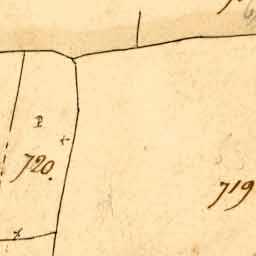 P
720.
719